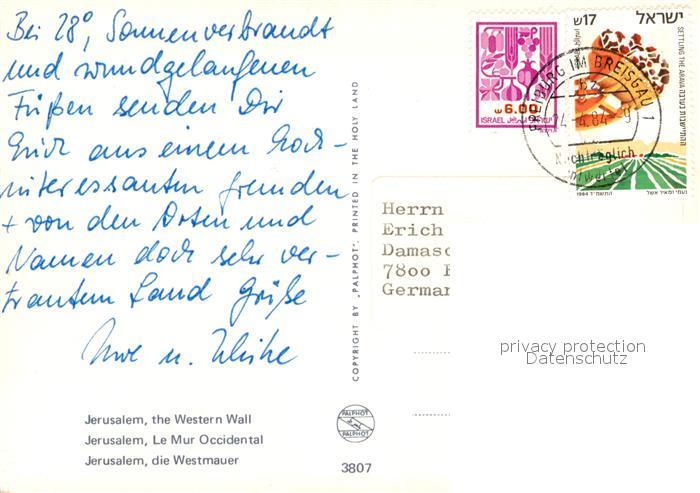 Bei 28°, Sonnenverbrandt
und wundgelaufenen
Füßen senden Dir
Erich aus einem hoch-
interessanten fremden
+ von den Orten und
Namen doch sehr ver-
trautem Land Grüße
Uwe u. Ulrike
Jerusalem, the Western Wall
Jerusalem, Le Mur Occidental
Jerusalem, die Westmauer
PALPHOT
PALPHOT
3807
COPYRIGHT BY „PALPHOT", PRINTED IN THE HOLY LAND
6.00
ISRAEL
ישראל 17
SETTLING THE ARAVA
1984
FREIBURG IM BREISGAU 1
24.4.84-9
Nachträglich
entwertet
Herrn
Erich
Damasc
7800
German
privacy protection
Datenschutz